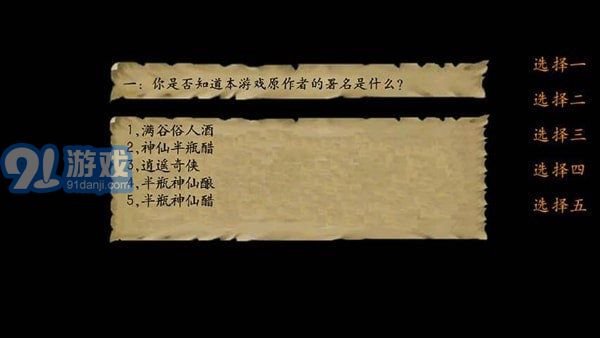 一：你是否知道本游戏原作者的署名是什么？
1,满谷俗人酒
2,神仙半瓶醋
3,逍遥奇侠
4,半瓶神仙酿
5,半瓶神仙醋
选择一
选择二
选择三
选择四
选择五
91游戏
91danji.com